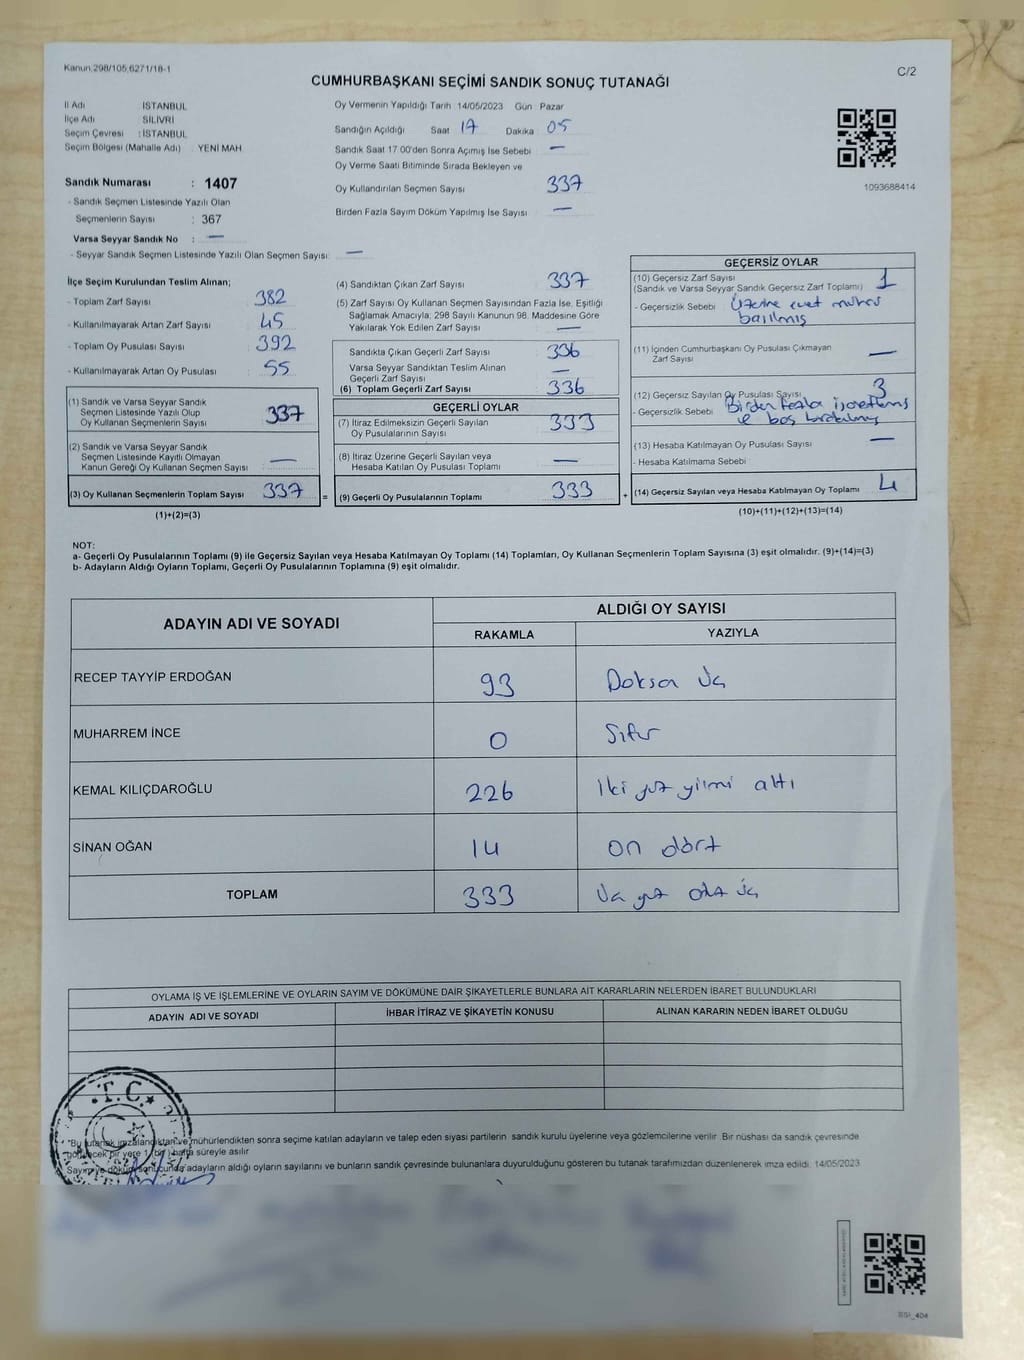 Kanun.298/105,6271/18-1
C/2
CUMHURBAŞKANI SEÇİMİ SANDIK SONUÇ TUTANAĞI
İl Adı İSTANBUL
İlçe Adı SİLİVRİ
Seçim Çevresi : İSTANBUL
Seçim Bölgesi (Mahalle Adı) YENİ MAH
Oy Vermenin Yapıldığı Tarih 14/05/2023 Gün Pazar
Sandığın Açıldığı Saat 17 Dakika 05
Sandık Saat 17.00'den Sonra Açımış İse Sebebi —
Oy Verme Saati Bitiminde Sırada Bekleyen ve
Oy Kullandırılan Seçmen Sayısı 337
Birden Fazla Sayım Döküm Yapılmış İse Sayısı —
1093688414
Sandık Numarası : 1407
- Sandık Seçmen Listesinde Yazılı Olan
Seçmenlerin Sayısı : 367
Varsa Seyyar Sandık No : —
- Seyyar Sandık Seçmen Listesinde Yazılı Olan Seçmen Sayısı: —
İlçe Seçim Kurulundan Teslim Alınan;
- Toplam Zarf Sayısı 382
- Kullanılmayarak Artan Zarf Sayısı 45
- Toplam Oy Pusulası Sayısı 392
- Kullanılmayarak Artan Oy Pusulası 55
(1) Sandık ve Varsa Seyyar Sandık
Seçmen Listesinde Yazılı Olup
Oy Kullanan Seçmenlerin Sayısı 337
(2) Sandık ve Varsa Seyyar Sandık
Seçmen Listesinde Kayıtlı Olmayan
Kanun Gereği Oy Kullanan Seçmen Sayısı —
(3) Oy Kullanan Seçmenlerin Toplam Sayısı 337
(1)+(2)=(3)
(4) Sandıktan Çıkan Zarf Sayısı 337
(5) Zarf Sayısı Oy Kullanan Seçmen Sayısından Fazla İse, Eşitliği
Sağlamak Amacıyla; 298 Sayılı Kanunun 98. Maddesine Göre
Yakılarak Yok Edilen Zarf Sayısı —
Sandıkta Çıkan Geçerli Zarf Sayısı 336
Varsa Seyyar Sandıktan Teslim Alınan
Geçerli Zarf Sayısı —
(6) Toplam Geçerli Zarf Sayısı 336
GEÇERLİ OYLAR
(7) İtiraz Edilmeksizin Geçerli Sayılan
Oy Pusulalarının Sayısı 333
(8) İtiraz Üzerine Geçerli Sayılan veya
Hesaba Katılan Oy Pusulası Toplamı —
= (9) Geçerli Oy Pusulalarının Toplamı 333
GEÇERSİZ OYLAR
(10) Geçersiz Zarf Sayısı 1
(Sandık ve Varsa Seyyar Sandık Geçersiz Zarf Toplamı)
- Geçersizlik Sebebi Üzerine evet mührü
basılmış
(11) İçinden Cumhurbaşkanı Oy Pusulası Çıkmayan
Zarf Sayısı —
(12) Geçersiz Sayılan Oy Pusulası Sayısı 3
- Geçersizlik Sebebi Birden fazla
ve boş
(13) Hesaba Katılmayan Oy Pusulası Sayısı —
- Hesaba Katılmama Sebebi
+ (14) Geçersiz Sayılan veya Hesaba Katılmayan Oy Toplamı 4
(10)+(11)+(12)+(13)=(14)
NOT:
a- Geçerli Oy Pusulalarının Toplamı (9) ile Geçersiz Sayılan veya Hesaba Katılmayan Oy Toplamı (14) Toplamları, Oy Kullanan Seçmenlerin Toplam Sayısına (3) eşit olmalıdır. (9)+(14)=(3)
b- Adayların Aldığı Oyların Toplamı, Geçerli Oy Pusulalarının Toplamına (9) eşit olmalıdır.
ADAYIN ADI VE SOYADI
ALDIĞI OY SAYISI
RAKAMLA YAZIYLA
RECEP TAYYİP ERDOĞAN 93 Doksan üç
MUHARREM İNCE 0 Sıfır
KEMAL KILIÇDAROĞLU 226 İki yüz yirmi altı
SİNAN OĞAN 14 On dört
TOPLAM 333 Üç yüz otuz üç
OYLAMA İŞ VE İŞLEMLERİNE VE OYLARIN SAYIM VE DÖKÜMÜNE DAİR ŞİKAYETLERLE BUNLARA AİT KARARLARIN NELERDEN İBARET BULUNDUKLARI
ADAYIN ADI VE SOYADI İHBAR İTİRAZ VE ŞİKAYETİN KONUSU ALINAN KARARIN NEDEN İBARET OLDUĞU
T.C.
"Bu tutanak imzalandıktan ve mühürlendikten sonra seçime katılan adayların ve talep eden siyasi partilerin sandık kurulu üyelerine veya gözlemcilerine verilir. Bir nüshası da sandık çevresinde
görülecek bir yere 1 (bir) hafta süreyle asılır
Sayım ve döküm sonucunda adayların aldığı oyların sayılarını ve bunların sandık çevresinde bulunanlara duyurulduğunu gösteren bu tutanak tarafımızdan düzenlenerek imza edildi. 14/05/2023